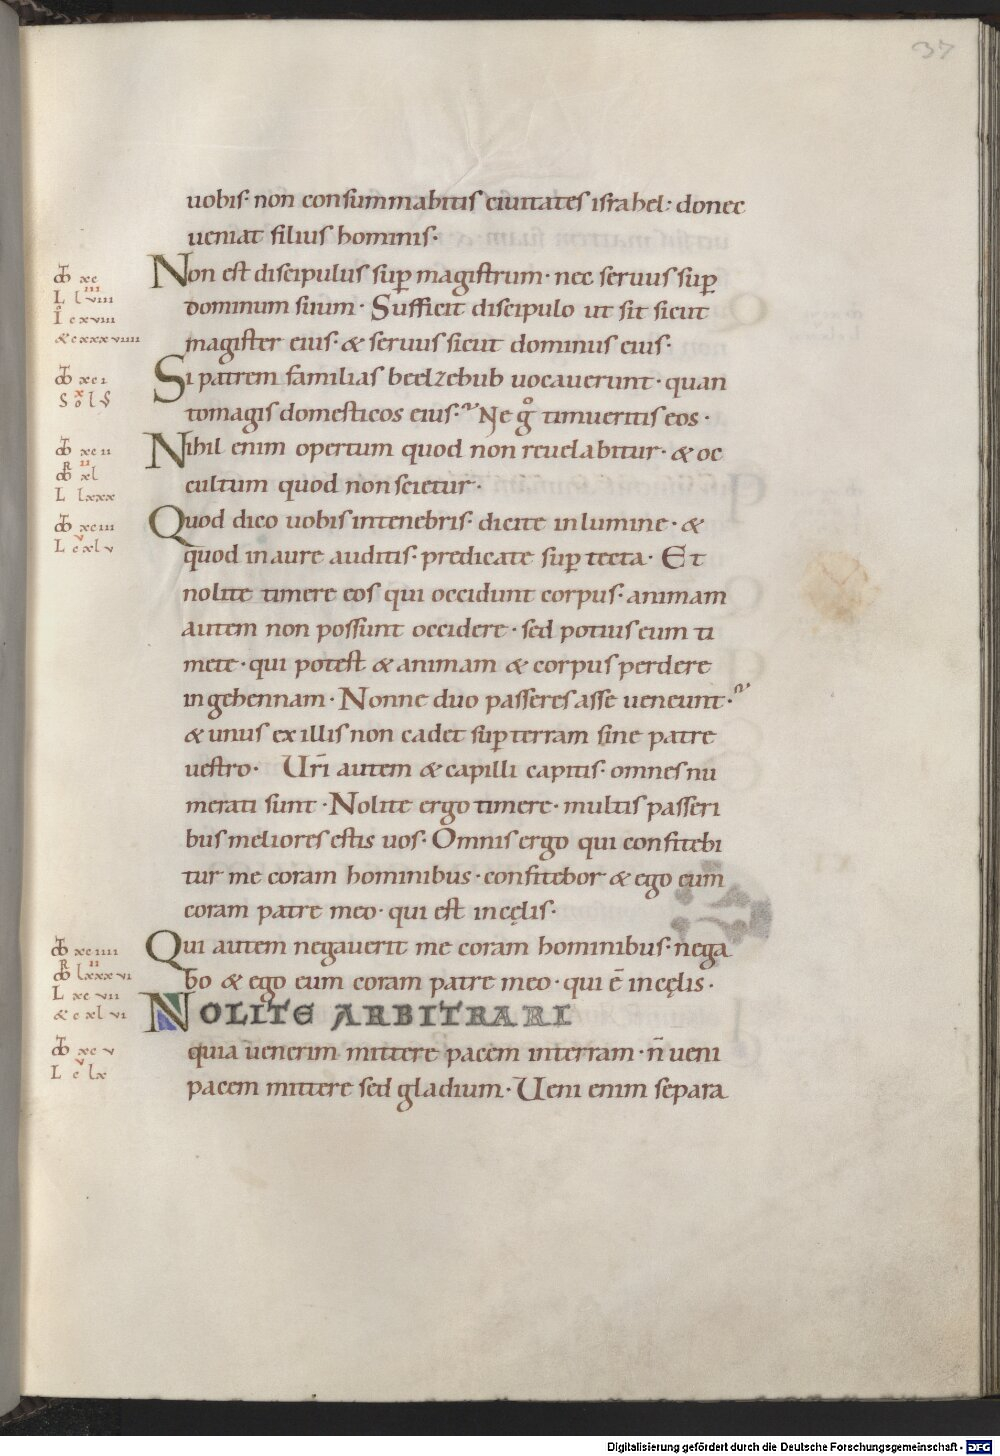 37
uobis· non consummabitis ciuitates israhel: donec
ueniat filius hominis·
Non est discipulus sup̄ magistrum· nec seruus sup̄
dominum suum· Sufficit discipulo ut sit sicut
magister eius· & seruus sicut dominus eius·
Si patrem familias beelzebub uocauerunt· quan
tomagis domesticos eius· Ne gͦ timueritis eos·
Nihil enim opertum quod non reuelabitur· & oc
cultum quod non scietur·
Quod dico uobis intenebris· dicite inlumine· &
quod inaure auditis· predicate sup̄ tecta· Et
nolite timere eos qui occidunt corpus· animam
autem non possunt occidere· sed potius eum ti
mete· qui potest & animam & corpus perdere
ingehennam· Nonne duo passeres asse ueneunt·
& unus ex illis non cadet sup̄ terram sine patre
uestro· Ur̄i autem & capilli capitis· omnes nu
merati sunt· Nolite ergo timere· multis passeri
bus meliores estis uos· Omnis ergo qui confitebi
tur me coram hominibus· confitebor & ego eum
coram patre meo· qui est incęlis·
Qui autem negauerit me coram hominibus· nega
bo & ego eum coram patre meo· qui ē incęlis·
NOLITE ARBITRARI
quia uenerim mittere pacem interram· n̄ ueni
pacem mittere sed gladium· Ueni enim separa
xc
L l viii
I cxviii
&cxxxviiii
xci
xcii
xl
L lxxx
xciii
L cxlv
xciiii
lxxxvi
L xcvii
&cxlvi
xcv
L clx
Digitalisierung gefördert durch die Deutsche Forschungsgemeinschaft - DFG